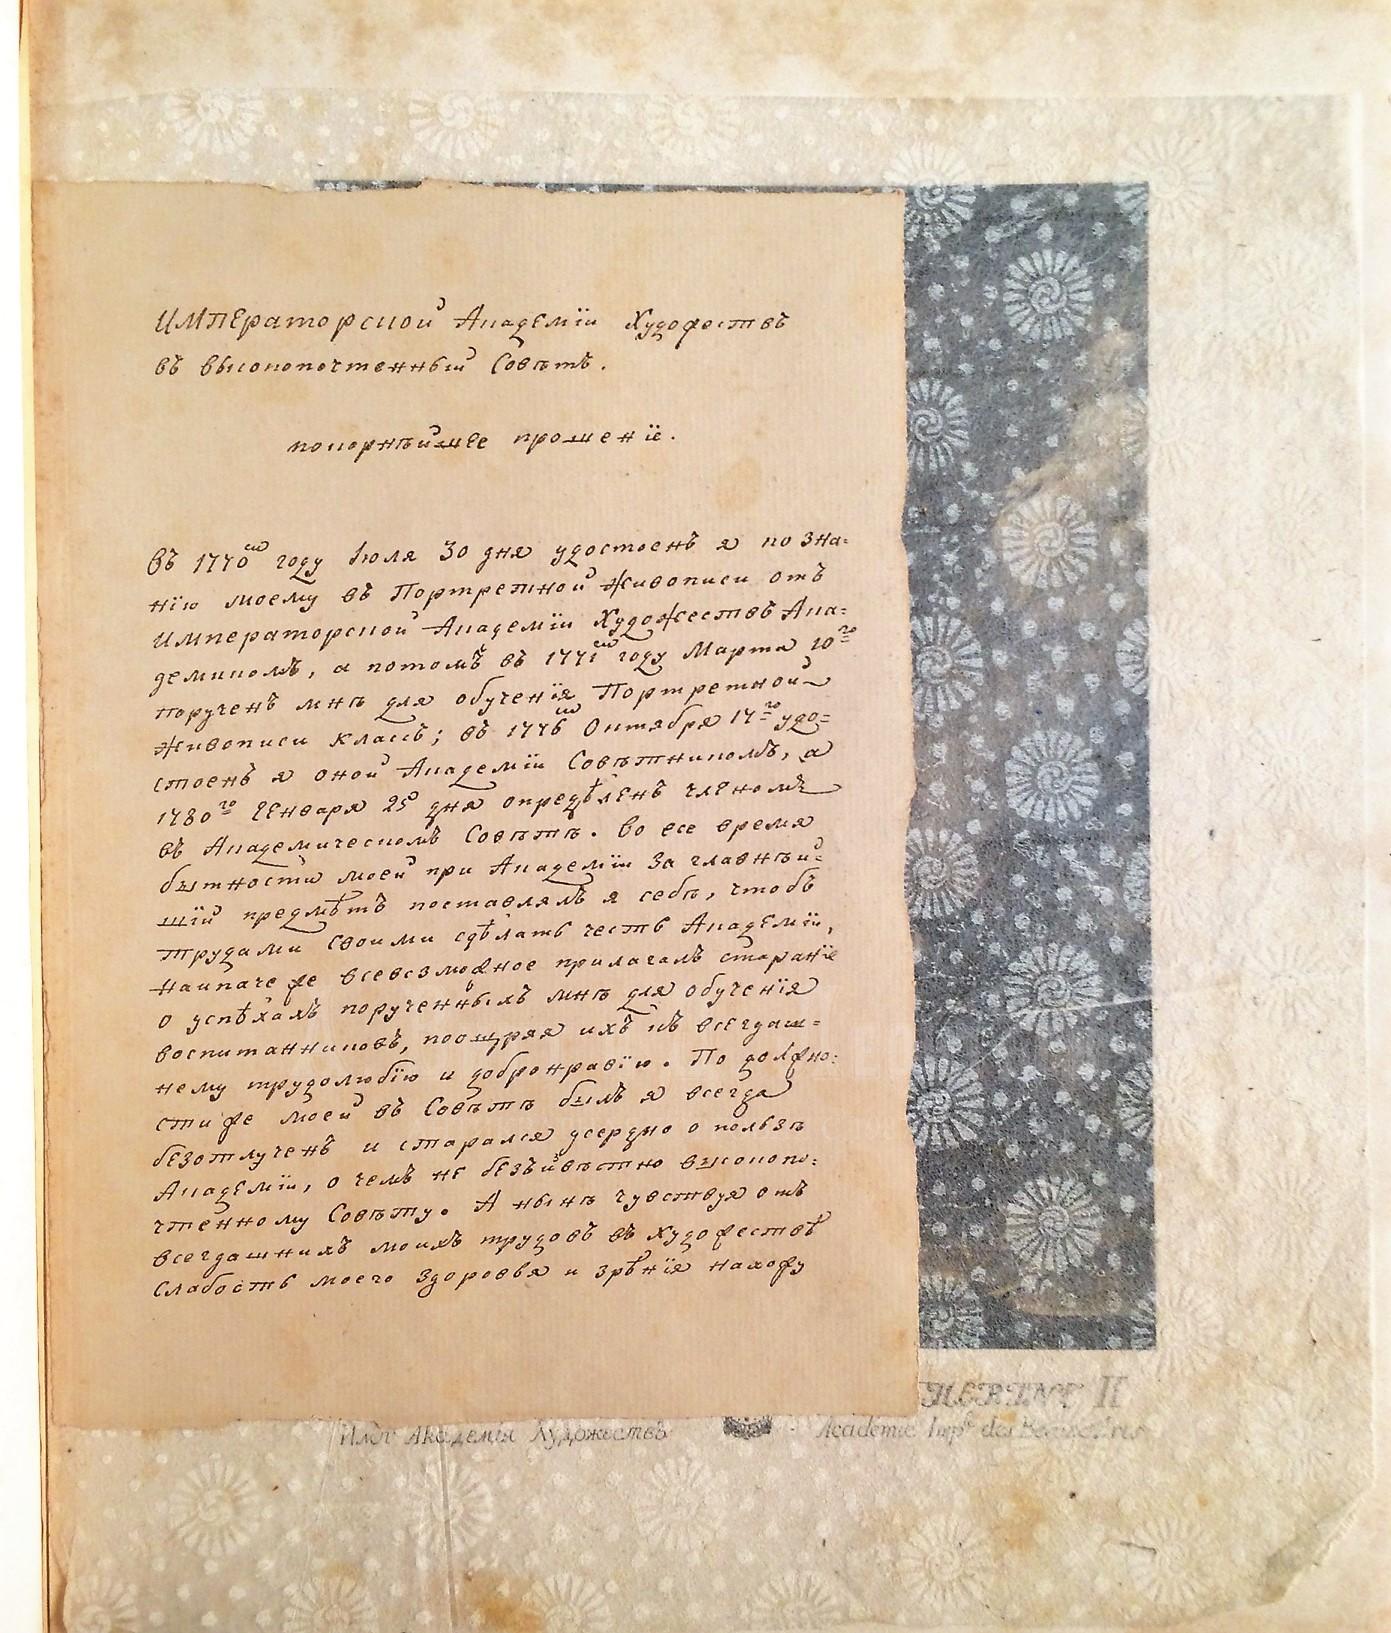 Императорской Академїи Художествъ
въ высокопочтенный Совѣтъ.
покорнѣйшее прошенїе.
Въ 1770ᵐ году Iюля 30 дня удостоенъ я по зна=
нїю моему въ Портретной Живописи отъ
Императорской Академїи Художествъ Ака=
демикомъ, а потомъ въ 1771ᵐ году Марта 10го
порученъ мнѣ для обученїя Портретной
Живописи классъ; въ 1776ᵐ Октября 17го удо=
стоенъ я оной Академїи Совѣтникомъ, а
1780го Генваря 25 дня опредѣленъ членомъ
въ Академическомъ Совѣтѣ. Во все время
бытности моей при Академїи за главнѣй=
шїй предмѣтъ поставлялъ я себѣ, чтобъ
трудами своими сдѣлать честь Академїи,
наипаче же всевозможное прилагалъ старанїе
о успѣхахъ порученныхъ мнѣ для обученїя
воспитанниковъ, поощряя ихъ къ всегдаш=
нему трудолюбїю и добронравїю. По должно=
сти же моей въ Совѣтѣ былъ я всегда
безотлученъ и старался усердно о пользѣ
Академїи, о чемъ не безъизвѣстно высокопо=
чтенному Совѣту. А нынѣ чувствуя отъ
всегдашнихъ моихъ трудовъ въ художествѣ
слабость моего здоровья и зрѣнїя нахожу
II
Академїя Художествъ
Academie Imp.le des Beaux Arts